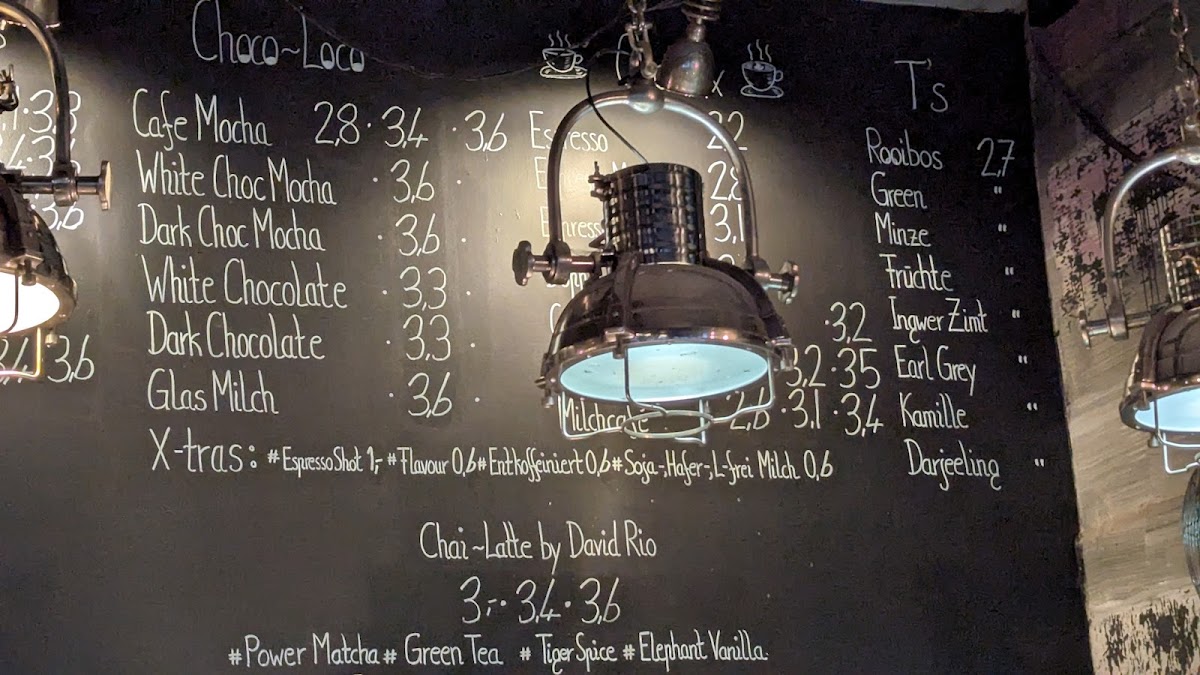 Choco~Loco
Cafe Mocha 2,8 · 3,4 · 3,6
White Choc Mocha · 3,6 ·
Dark Choc Mocha · 3,6 ·
White Chocolate · 3,3 ·
Dark Chocolate · 3,3 ·
Glas Milch · 3,6 ·
Espresso 2,2
2,8
3,1
· 3,2
3,2 · 3,5
2,6 · 3,1 · 3,4
T's
Rooibos 2,7
Green "
Minze "
Früchte "
Ingwer Zimt "
Earl Grey "
Kamille "
Darjeeling "
X-tras: #Espresso Shot 1,- #Flavour 0,6 #Entkoffeiniert 0,6 #Soja-,Hafer-,L-frei Milch 0,6
Chai~Latte by David Rio
3,- · 3,4 · 3,6
#Power Matcha # Green Tea # Tiger Spice # Elephant Vanilla